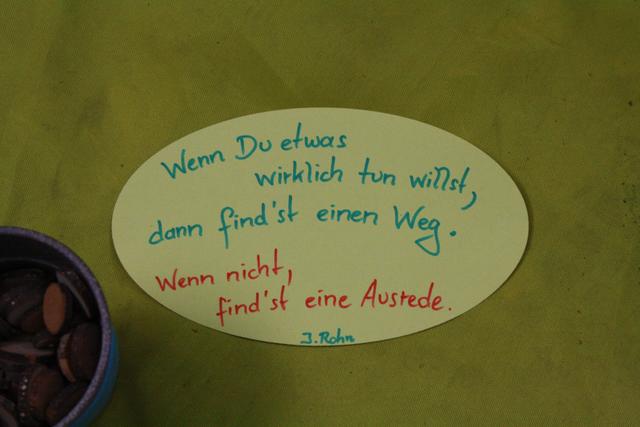 Wenn Du etwas
wirklich tun willst,
dann find'st einen Weg.
Wenn nicht,
find'st eine Ausrede.
J. Rohn